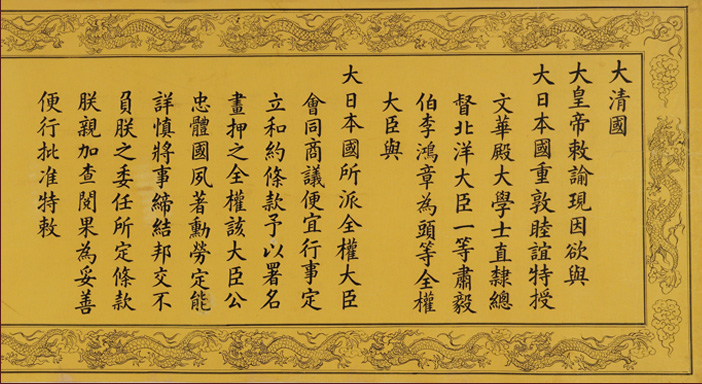 大清國
大皇帝敕諭現因欲與
大日本國重敦睦誼特授
文華殿大學士直隸總
督北洋大臣一等肅毅
伯李鴻章為頭等全權
大臣與
大日本國所派全權大臣
會同商議便宜行事定
立和約條款予以署名
畫押之全權該大臣公
忠體國夙著勳勞定能
詳慎將事締結邦交不
負朕之委任所定條款
朕親加查閱果為妥善
便行批准特敕